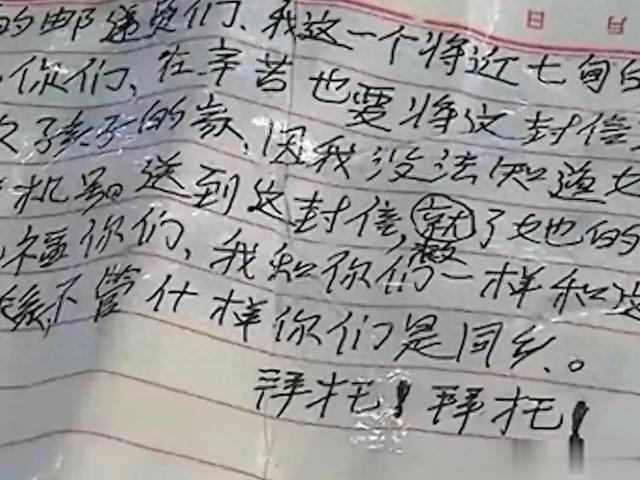 日 月
的邮递员们、我这一个将近七旬的
你们、在辛苦也要将这封信
女孩子的家、因我没法知道女
机号。送到这封信,就了她的
福你们、我和你们一样和
不管什样你们是同乡。
拜托！拜托！